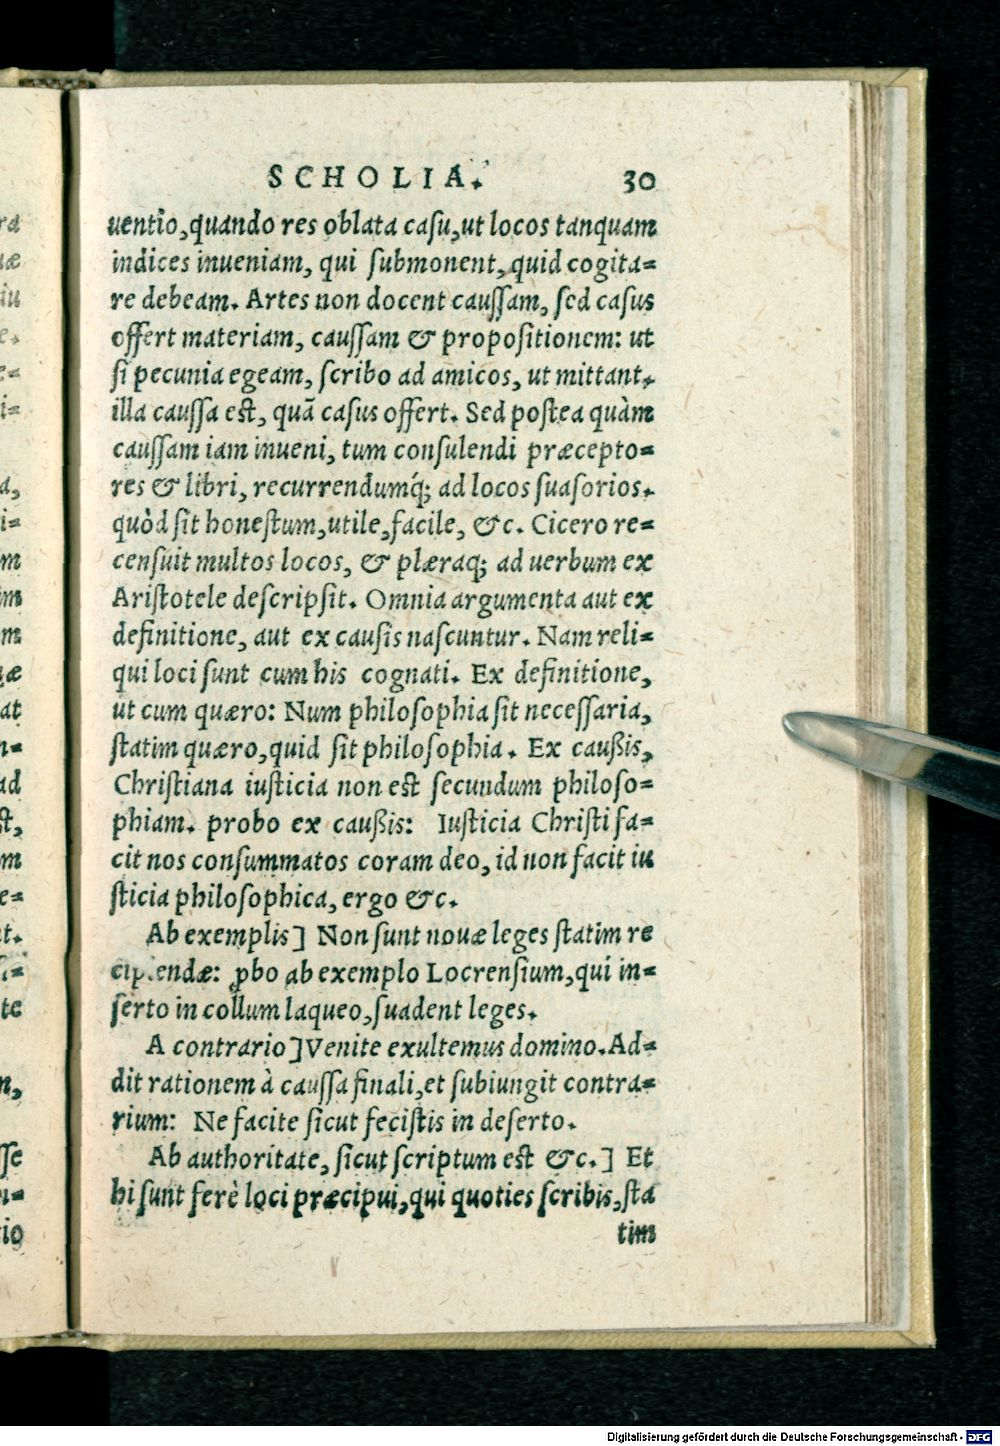 SCHOLIA. 30
uentio, quando res oblata casu, ut locos tanquam
indices inueniam, qui submonent, quid cogita=
re debeam. Artes non docent caussam, sed casus
offert materiam, caussam & propositionem: ut
si pecunia egeam, scribo ad amicos, ut mittant.
illa caussa est, quã casus offert. Sed postea quàm
caussam iam inueni, tum consulendi præcepto=
res & libri, recurrendumq́; ad locos suasorios.
quòd sit honestum, utile, facile, &c. Cicero re=
censuit multos locos, & plæraq; ad uerbum ex
Aristotele descripsit. Omnia argumenta aut ex
definitione, aut ex causis nascuntur. Nam reli=
qui loci sunt cum his cognati. Ex definitione,
ut cum quæro: Num philosophia sit necessaria,
statim quæro, quid sit philosophia. Ex caußis,
Christiana iusticia non est secundum philoso=
phiam. probo ex caußis: Iusticia Christi fa=
cit nos consummatos coram deo, id non facit iu
sticia philosophica, ergo &c.
Ab exemplis] Non sunt nouæ leges statim re
cipiendæ: ꝓbo ab exemplo Locrensium, qui in=
serto in collum laqueo, suadent leges.
A contrario] Venite exultemus domino. Ad=
dit rationem à caussa finali, et subiungit contra=
rium: Ne facite sicut fecistis in deserto.
Ab authoritate, sicut scriptum est &c.] Et
hi sunt ferè loci præcipui, qui quoties scribis, sta
tim
ra
uæ
iu
e.
e=
i=
a,
i=
m
im
m
uæ
at
n=
ad
st,
m
e=
t.
si=
te
n,
sse
u=
tio
Digitalisierung gefördert durch die Deutsche Forschungsgemeinschaft - DFG